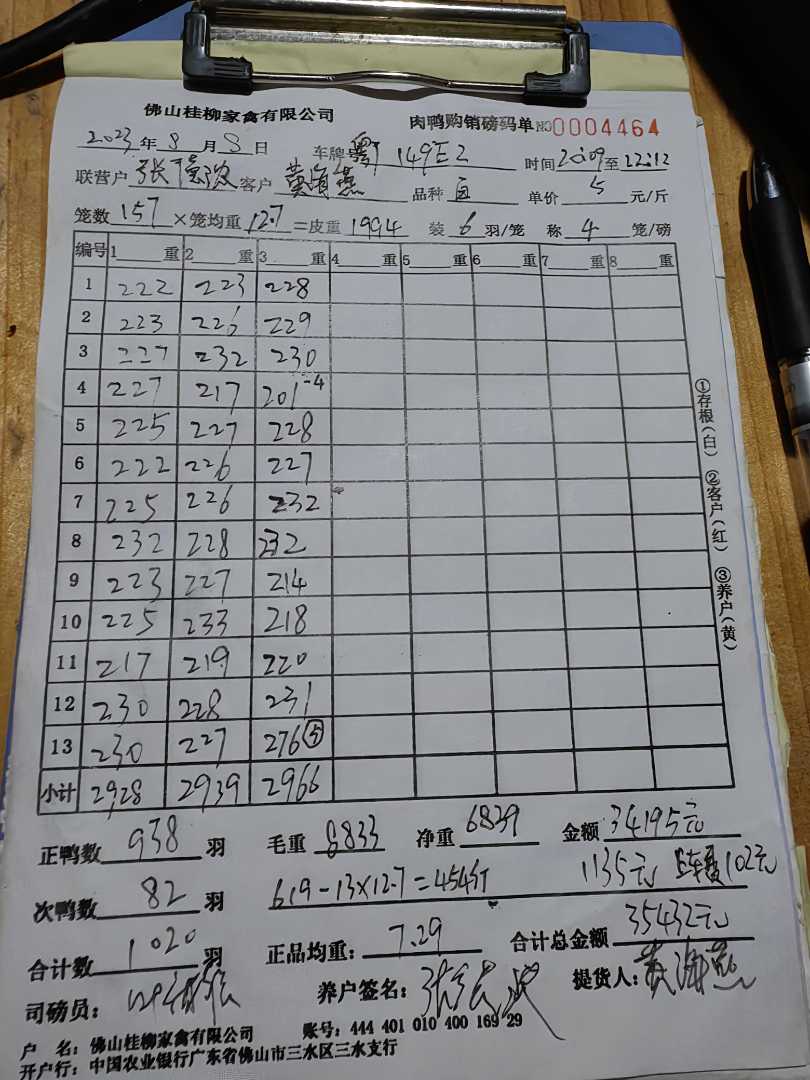 佛山桂柳家禽有限公司 肉鸭购销磅码单 №0004464
2023年8月8日 车牌号粤 149E2 时间20:09至22:12
联营户 客户 黄海燕 品种 白 单价 5 元/斤
笼数 157 ×笼均重 12.7 =皮重 1994 装 6 羽/笼 称 4 笼/磅
编号 1 重 2 重 3 重 4 重 5 重 6 重 7 重 8 重
1 222 223 228
2 223 226 229
3 227 232 230
4 227 217 201-4
5 225 227 228
6 222 226 227
7 225 226 232
8 232 228 232
9 223 227 214
10 225 233 218
11 217 219 220
12 230 228 231
13 230 227 276⑤
小计 2928 2939 2966
①存根(白) ②客户(红) ③养户(黄)
正鸭数 938 羽 毛重 8833 净重 6839 金额 34195元
次鸭数 82 羽 619-13×12.7=454斤 1135元 102元
合计数 1020 羽 正品均重: 7.29 合计总金额 35432元
司磅员: 养户签名: 提货人: 黄海燕
户 名: 佛山桂柳家禽有限公司 账号: 444 401 010 400 169 29
开户行: 中国农业银行广东省佛山市三水区三水支行